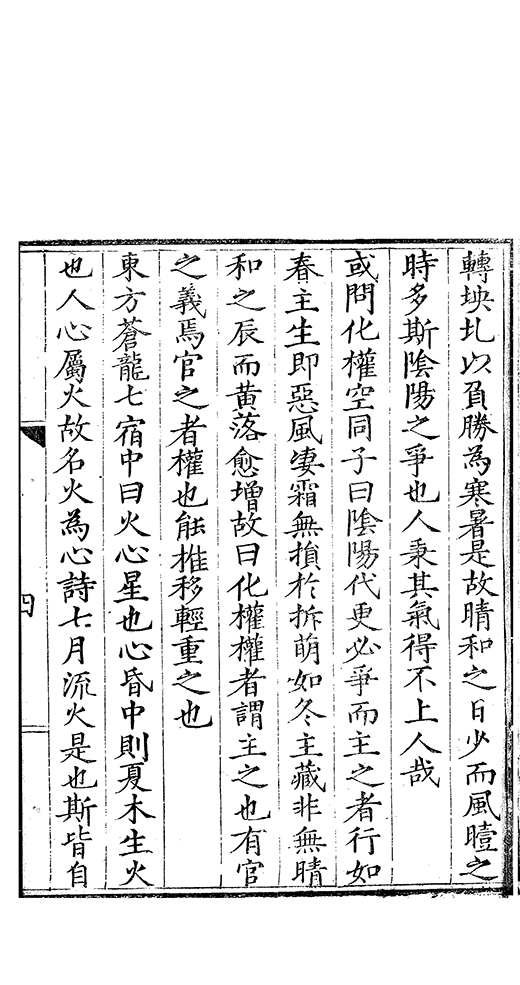 轉坱圠以負勝為寒暑是故晴和之日少而風曀之
時多斯陰陽之爭也人秉其氣得不上人哉
或問化權空同子曰陰陽代更必爭而主之者行如
春主生即惡風凄霜無損於拆萌如冬主藏非無晴
和之辰而黃落愈增故曰化權權者謂主之也有官
之義焉官之者權也能推移輕重之也
東方蒼龍七宿中曰火心星也心昏中則夏木生火
也人心屬火故名火為心詩七月流火是也斯皆自
四